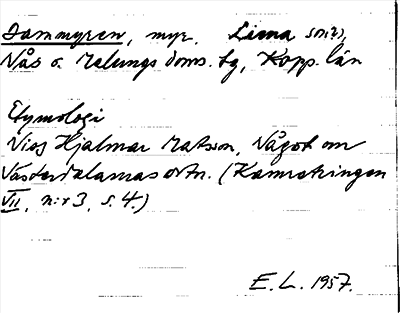 Dammyren, myr. Lima sn(r),
Nås o. Malungs doms. bg, Kopp. län
Etymologi
Hjalmar Matsson, Något om
Västerdalarnas ortn. (Kamratringen
VII, n:r 3, s. 4.)
E. L. 1957.